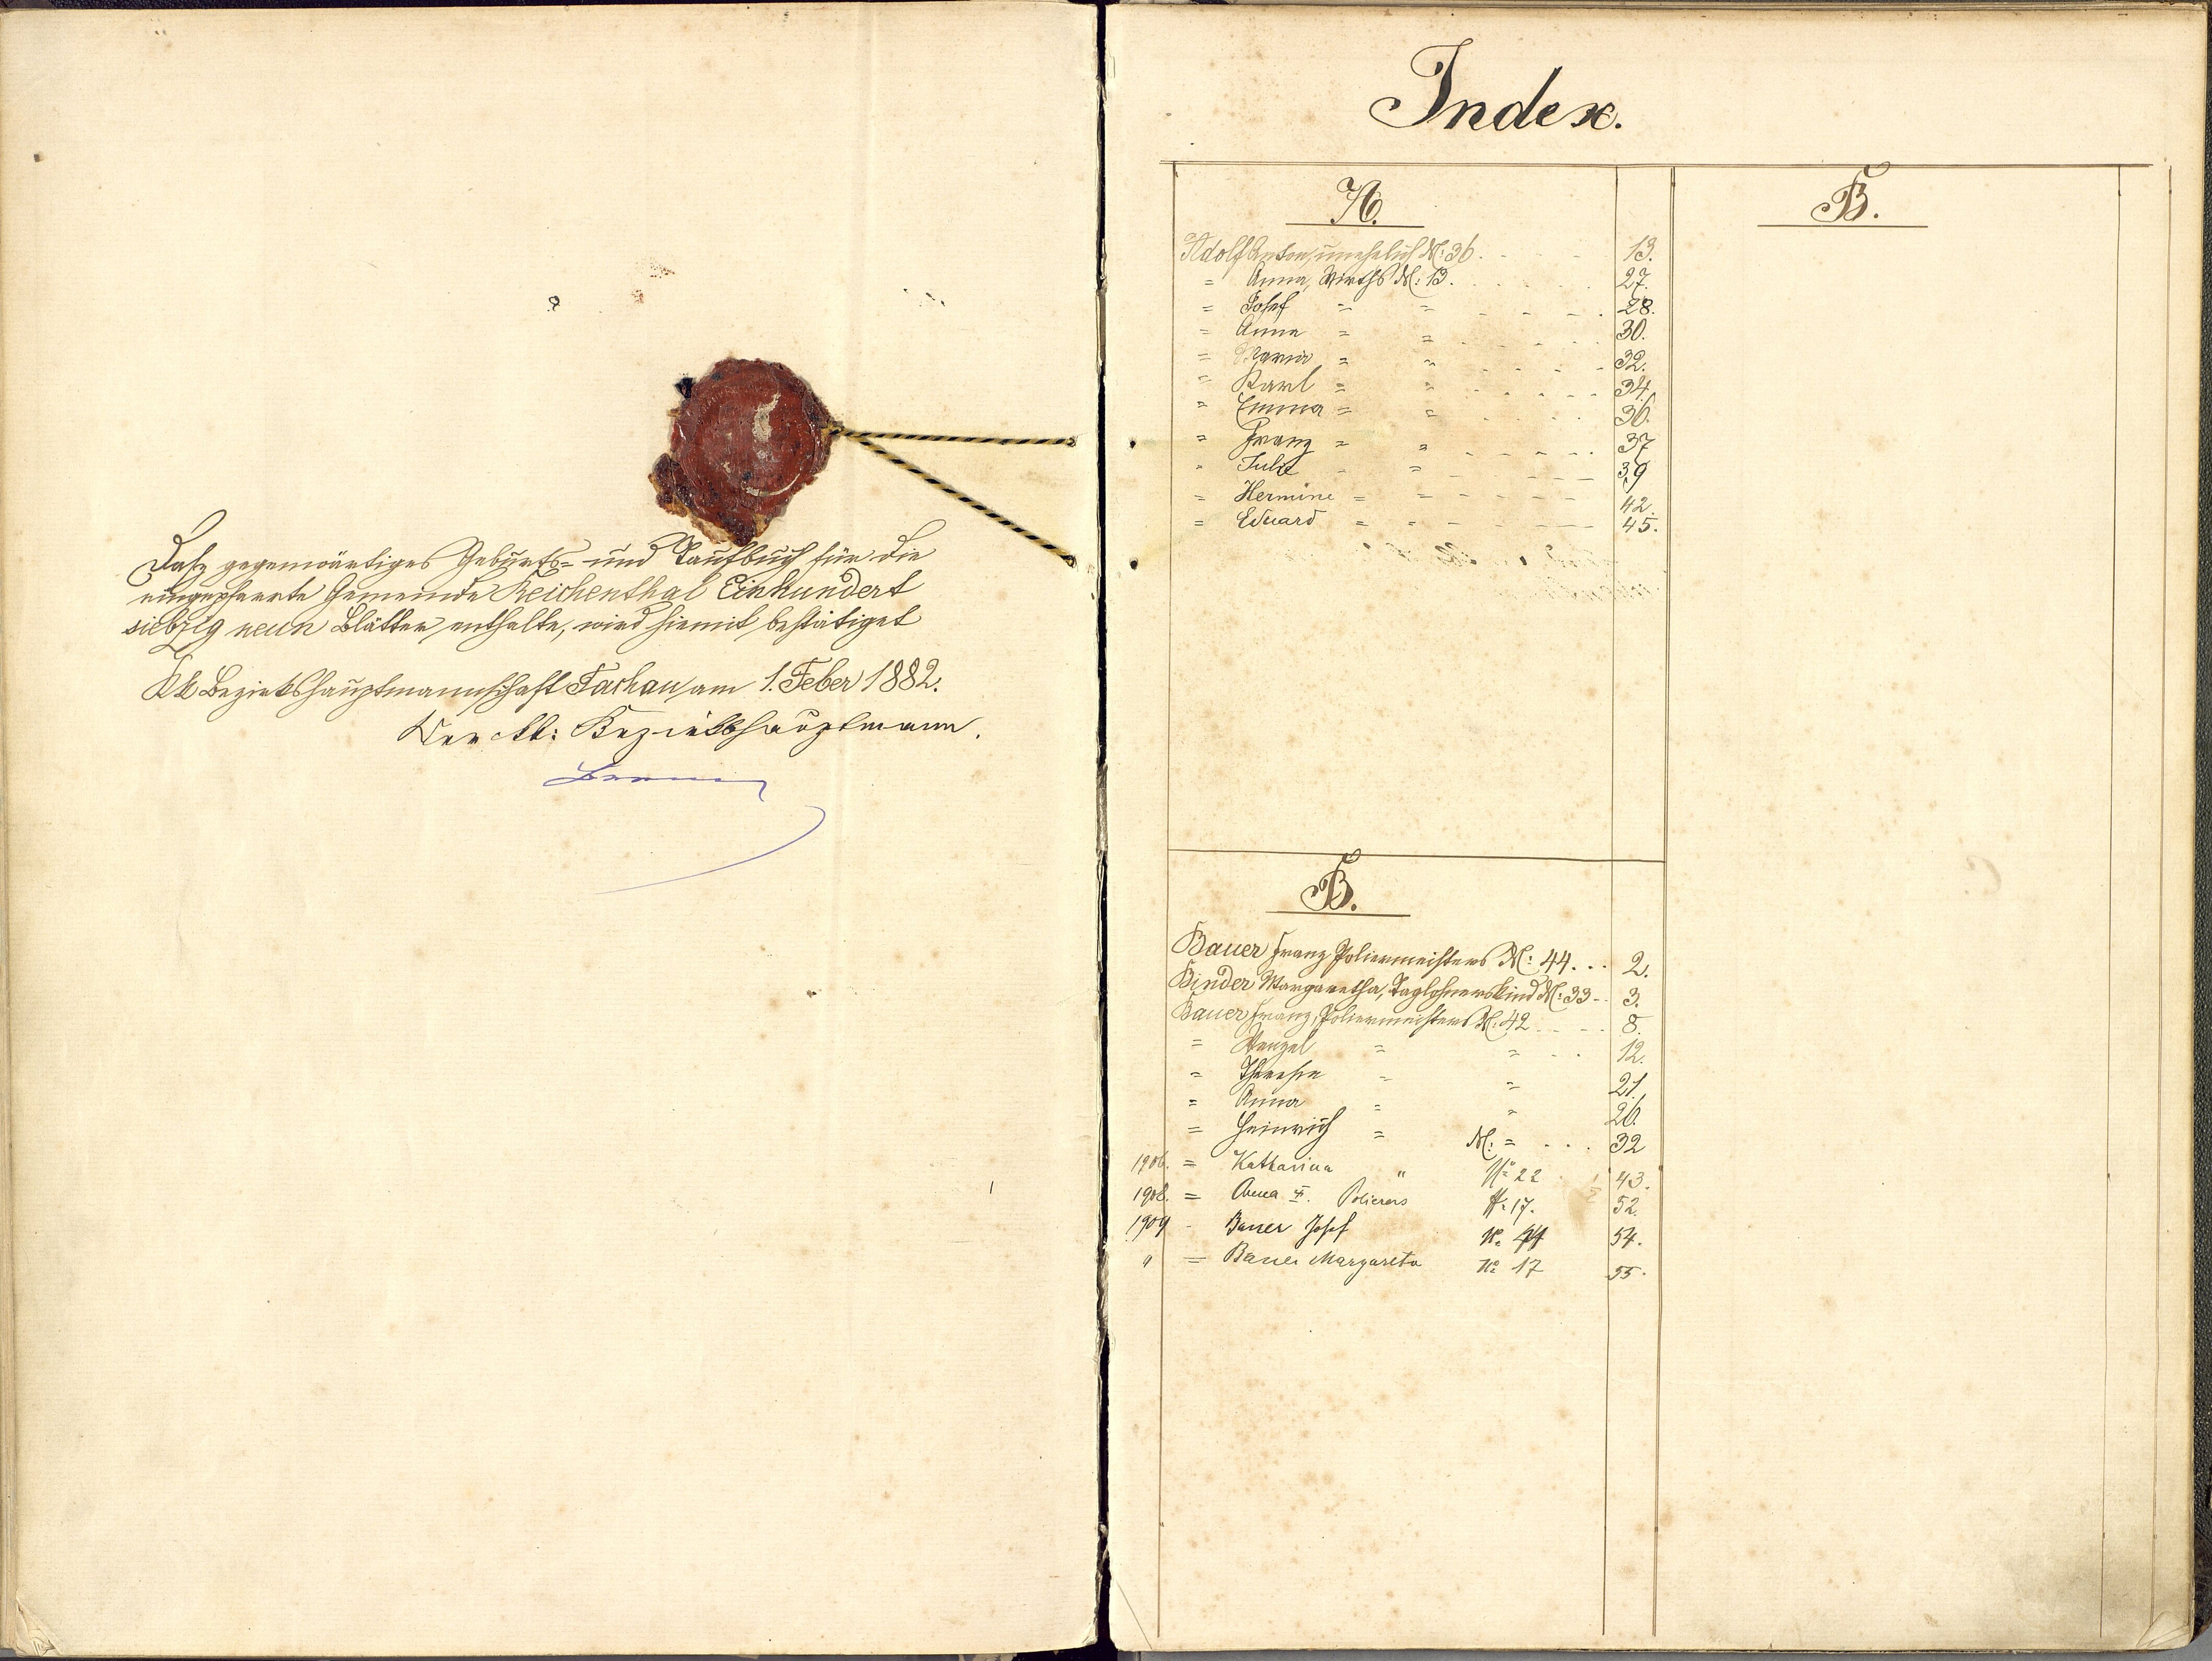 Daß gegenwärtiges Geburts- und Taufbuch für die
eingepfarrte Gemeinde Reichenthal Einhundert
siebzig neun Blätter enthalte, wird hiemit bestätiget
KK Bezirkshauptmannschaft Tachau am 1. Feber 1882.
Der kk: Bezirkshauptmann.
Index.
A.
Adolf Anton, unehelich N: 36. 13.
= Anna, Wirths N: 13. 27.
= Josef = = 28.
= Anna = = 30.
= Maria = = 32.
= Karl = = 34.
= Emma = = 36.
= Franz = = 37
= Julie = = 39
= Hermine = = 42.
= Eduard = = 45.
B.
Bauer Franz Poliermeisters N: 44. 2.
Binder Margaretha, Taglöhnerskind N: 33 3.
Bauer Franz, Poliermeisters N: 42 8.
= Wenzel = = 12.
= Theresia = = 21.
= Anna = = 26.
= Heinrich = N: = 32
1906. = Katharina " No 22 43.
1908. = Anna II. Polierers No 17. 52.
1909 - Bauer Josef No 44 54.
" = Bauer Margareta No 17 55.
B.